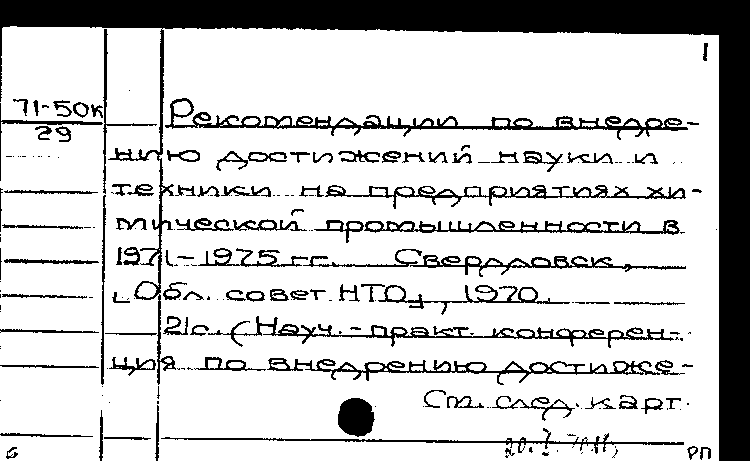 1
71-50к
29
Рекомендации по внедре-
нию достижений науки и
техники на предприятиях хи-
мической промышленности в
1971-1975 гг. Свердловск,
[Обл. совет НТО], 1970.
21с. (Науч.-практ. конферен-
ция по внедрению достиже-
См. след. карт.
6
РП